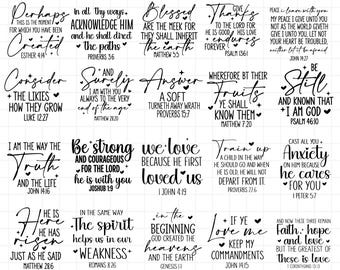 Perhaps
THIS IS THE MOMENT
FOR WHICH YOU HAVE BEEN
Created
ESTHER 4:14
in all thy ways
ACKNOWLEDGE HIM
and he shall direct
the paths
PROVERBS 3:6
Blessed
ARE THE MEEK FOR
THEY SHALL INHERIT
the earth
MATTHEW 5:5
Thanks
TO THE LORD FOR
HE IS GOOD HIS
LOVE endures
FOREVER
PEACE I leave with you
MY PEACE I GIVE UNTO YOU
NOT AS THE WORLD GIVETH
GIVE I UNTO YOU. LET NOT
YOUR HEART BE TROUBLED,
neither let it be afraid
JOHN 14:27
Consider
THE LILIES
HOW THEY GROW
LUKE 12:27
And
Surely
I AM WITH YOU
ALWAYS TO THE VERY
end of the age
MATTHEW 28:20
Answer
A SOFT
TURNETH AWAY WRATH
PROVERBS 15:7
WHEREFORE BT THEIR
Fruits
YE SHALL
KNOW THEM
MATTHEW 7:20
Be
Still
AND KNOWN THAT
I AM GOD
PSALM 46:10
I AM THE WAY THE
Truth
AND THE LIFE
JOHN 14:16
Be strong
AND COURAGEOUS
FOR THE LORD
he is with you
JOSHUB 1:9
we love
BECAUSE HE FIRST
loved us
1 JOHN 4:19
Train up
A CHILD IN THE WAY
HE SHOULD GO AND WHEN
HE IS OLD, HE WILL NOT
DEPART FROM IT.
PROVERBS 22:6
CAST ALL YOU
Anxiety
ON HIM BECAUSE
he cares
FOR YOU
1 PETER 5:7
He
IS HERE
HAS
risen
JUST AS HE SAID
MATTHEW 28:6
IN THE SAME WAY
The spirit
helps us in our
WEAKNESS
ROMANS 8:26
in the
BEGINNING
GOD CREATED THE
heavens
AND THE EARTH
GENESIS 1:1
IF YE
Love me
KEEP MY
COMMANDMENTS
JOHN 14:15
AND NOW THESE THREE REMAIN
Faith hope
and love
BUT THE GREATEST OF
these is love
1 CORINTHIANS 13:13